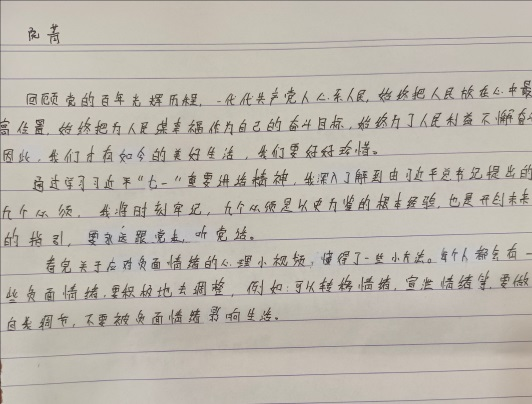 菁
回顾党的百年光辉历程，一代代共产党人心系人民，始终把人民放在心中最
高位置，始终把为人民谋幸福作为自己的奋斗目标，始终为了人民利益不懈奋斗
因此，我们才有如今的美好生活，我们要好好珍惜。
通过学习习近平“七一”重要讲话精神，我深入了解到由习近平总书记提出的
九个必须，我将时刻牢记，九个必须是以史为鉴的根本经验，也是开创未来
的指引，要永远跟党走，听党话。
看完关于应对负面情绪的心理小视频，懂得了一些小方法。每个人都会有一
些负面情绪，要积极地去调整，例如：可以转移情绪，宣泄情绪等，要做
自我调节，不要被负面情绪影响生活。